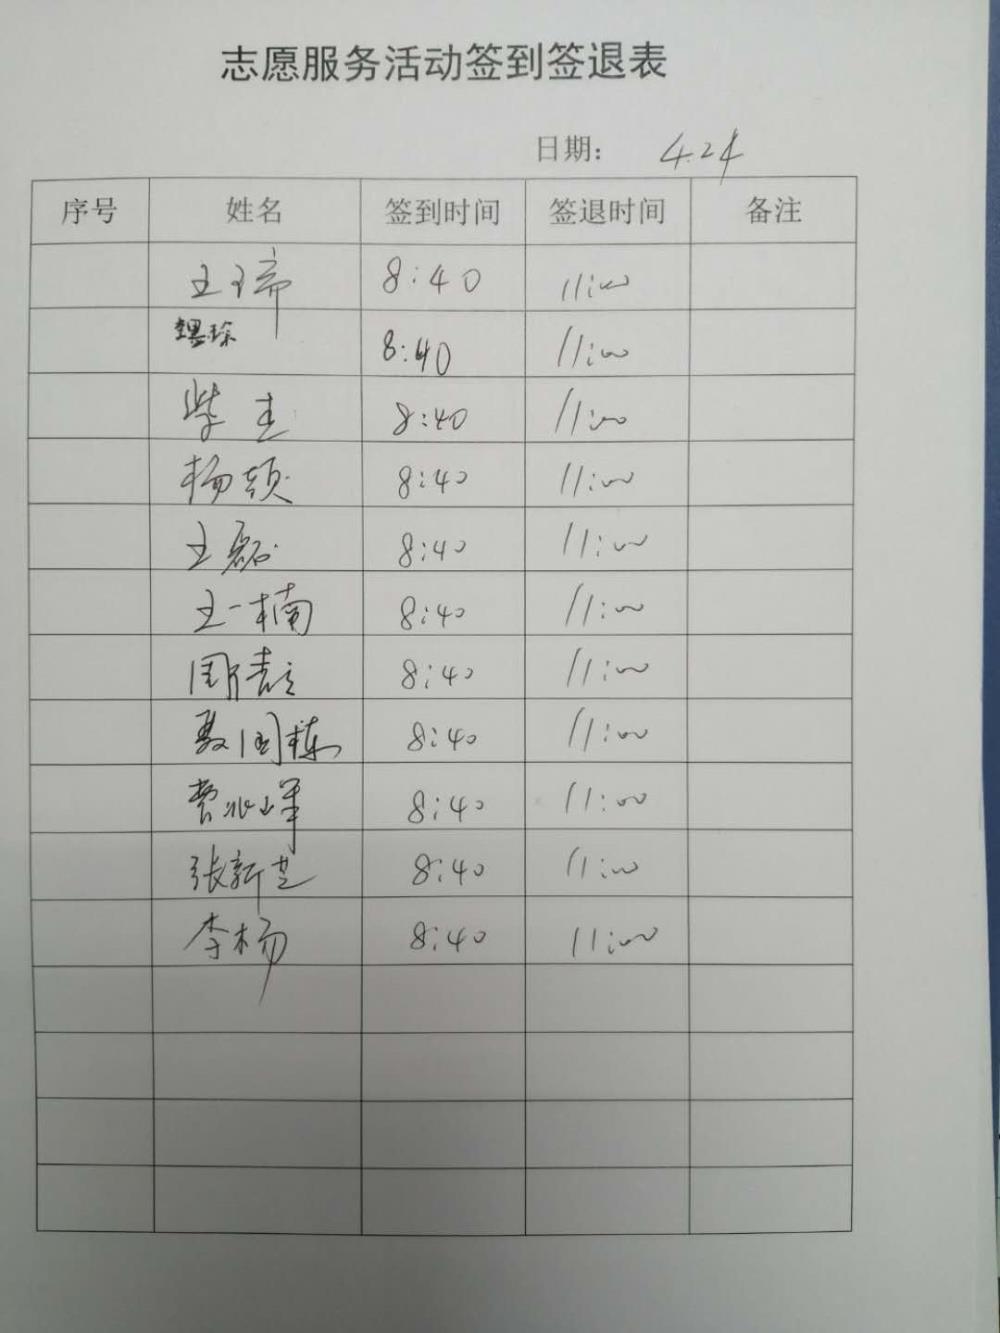 志愿服务活动签到签退表
日期： 4.24
序号 姓名 签到时间 签退时间 备注
8:40 11:00
8:40 11:00
柴圭 8:40 11:00
杨颉 8:40 11:00
王磊 8:40 11:00
王一楠 8:40 11:00
8:40 11:00
聂国栋 8:40 11:00
8:40 11:00
张新芝 8:40 11:00
李杨 8:40 11:00